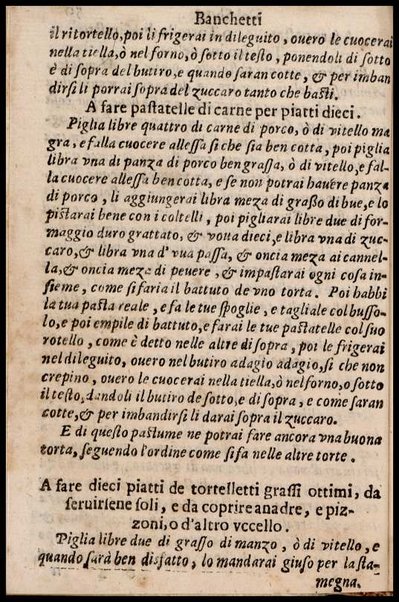 Banchetti
il ritortello, poi li frigerai in dileguito, ouero le cuocerai
nella tiella, ò nel forno, ò sotto il testo, ponendoli di sotto
è di sopra del butiro, e quando saran cotte, & per imban
dirsi li porrai sopra del zuccaro tanto che basti.
A fare pastatelle di carne per piatti dieci.
Piglia libre quattro di carne di porco, ò di vitello ma
gra, e falla cuocere allessa si che sia ben cotta, poi piglia
libra vna di panza di porco ben grassa, ò di vitello, e fal-
la cuocere allessa ben cotta, e se non potrai hauere panza
di porco, li aggiungerai libra meza di graßo di bue, e lo
pistarai bene con i coltelli, poi pigliarai libre due di for-
maggio duro grattato, & voua dieci, e libra vna di zuc-
caro, & libra vna d'vua passa, & oncia meza ai cannel-
la, & oncia meza di peuere, & impastarai ogni cosa in-
sieme, come si faria il battuto de vno torta. Poi habbi
la tua pasta reale, e fa le tue spoglie, e tagliale col busso-
lo, e poi empile di battuto, e farai le tue pastatelle col suo
rotello, come è detto nelle altre di sopra, poi le frigerai
nel dileguito, ouero nel butiro adagio adagio, si che non
crepino, ouero le cuocerai nella tiella, ò nel forno, o sotto
il testo, dandoli il butiro de sotto, e di sopra, e come saran
cotte, & per imbandirsi li darai sopra il zuccaro.
E di questo pastume ne potrai fare ancora vna buona
torta, seguendo l'ordine come si fa nelle altre torte.
A fare dieci piatti de tortelletti grassi ottimi, da
seruirsene soli, e da coprire anadre, e piz-
zoni, o d'altro vccello.
Piglia libre due di grasso di manzo, ò di vitello, e
quando sarà ben disfatto, lo mandarai giuso per la sta-
megna.